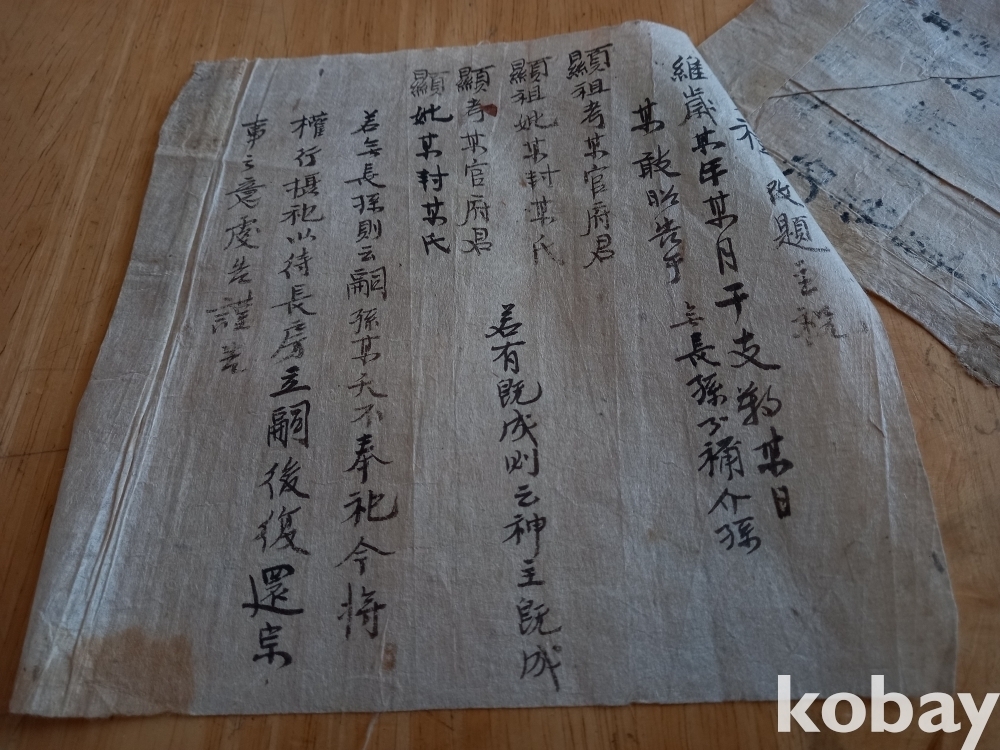 改題主祝
維歲某年某月干支朔某日
某敢昭告于 無長孫不稱介孫
顯祖考某官府君
顯祖妣某封某氏 若有旣成則云神主旣成
顯考某官府君
顯妣某封某氏
若無長孫則云嗣孫某夭不奉祀今將
權行攝祀以待長房立嗣後復還宗
事之意虔告謹告
kobay